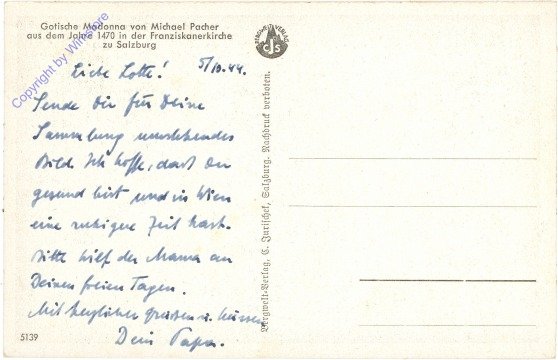 Gotische Madonna von Michael Pacher
aus dem Jahre 1470 in der Franziskanerkirche
zu Salzburg
Copyright by WinStore
BERGWELT-VERLAG
CJS
5/10.44.
Liebe Lotte!
Sende Dir für Deine
Sammlung umstehendes
Bild. Ich hoffe, dass Du
gesund bist und in Wien
eine ruhigere Zeit hast.
Bitte hilf der Mama an
Deinen freien Tagen.
Mit herzlichen Grüssen u. Küssen
Dein Papa.
5139
Bergwelt-Verlag, C. Jurischek, Salzburg. Nachdruck verboten.